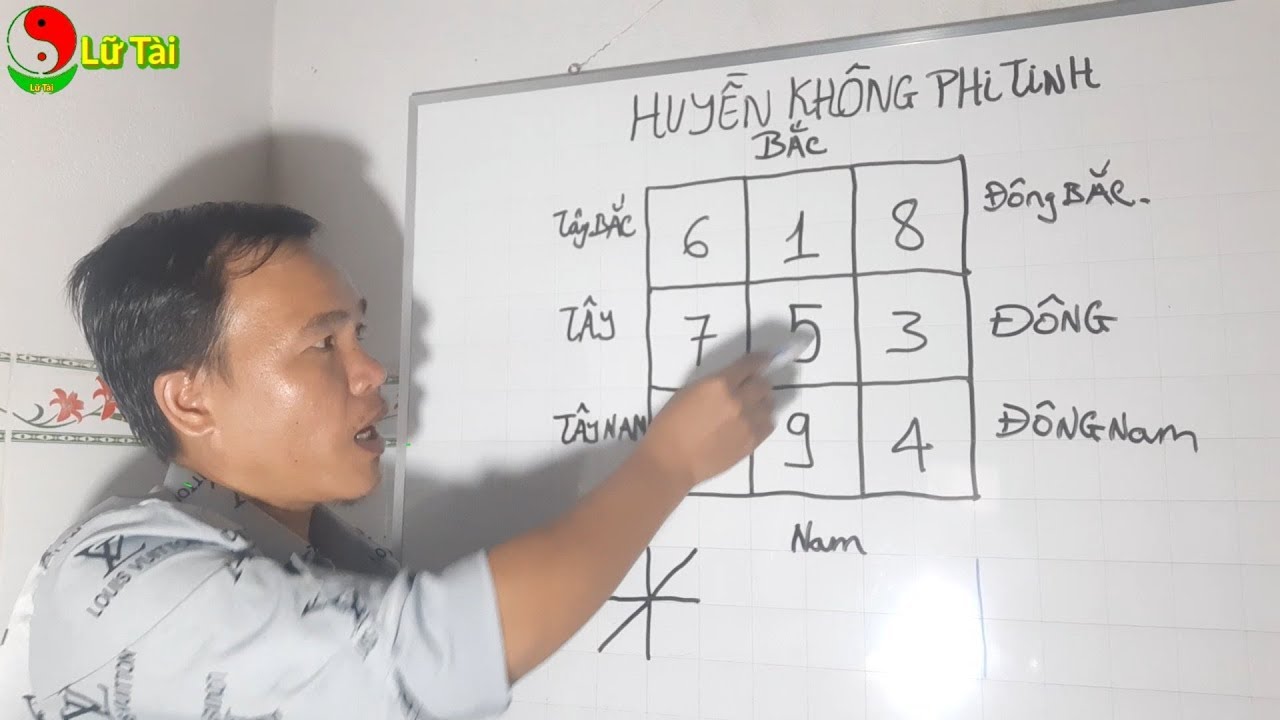 Lữ Tài
Lữ Tài
HUYỀN KHÔNG PHI TINH
BẮC
Tây BẮC 6 1 8 Đông BẮC.
TÂY 7 5 3 ĐÔNG
TÂY NAM 9 4 ĐÔNG Nam
Nam
LV
LOUIS VUITTON